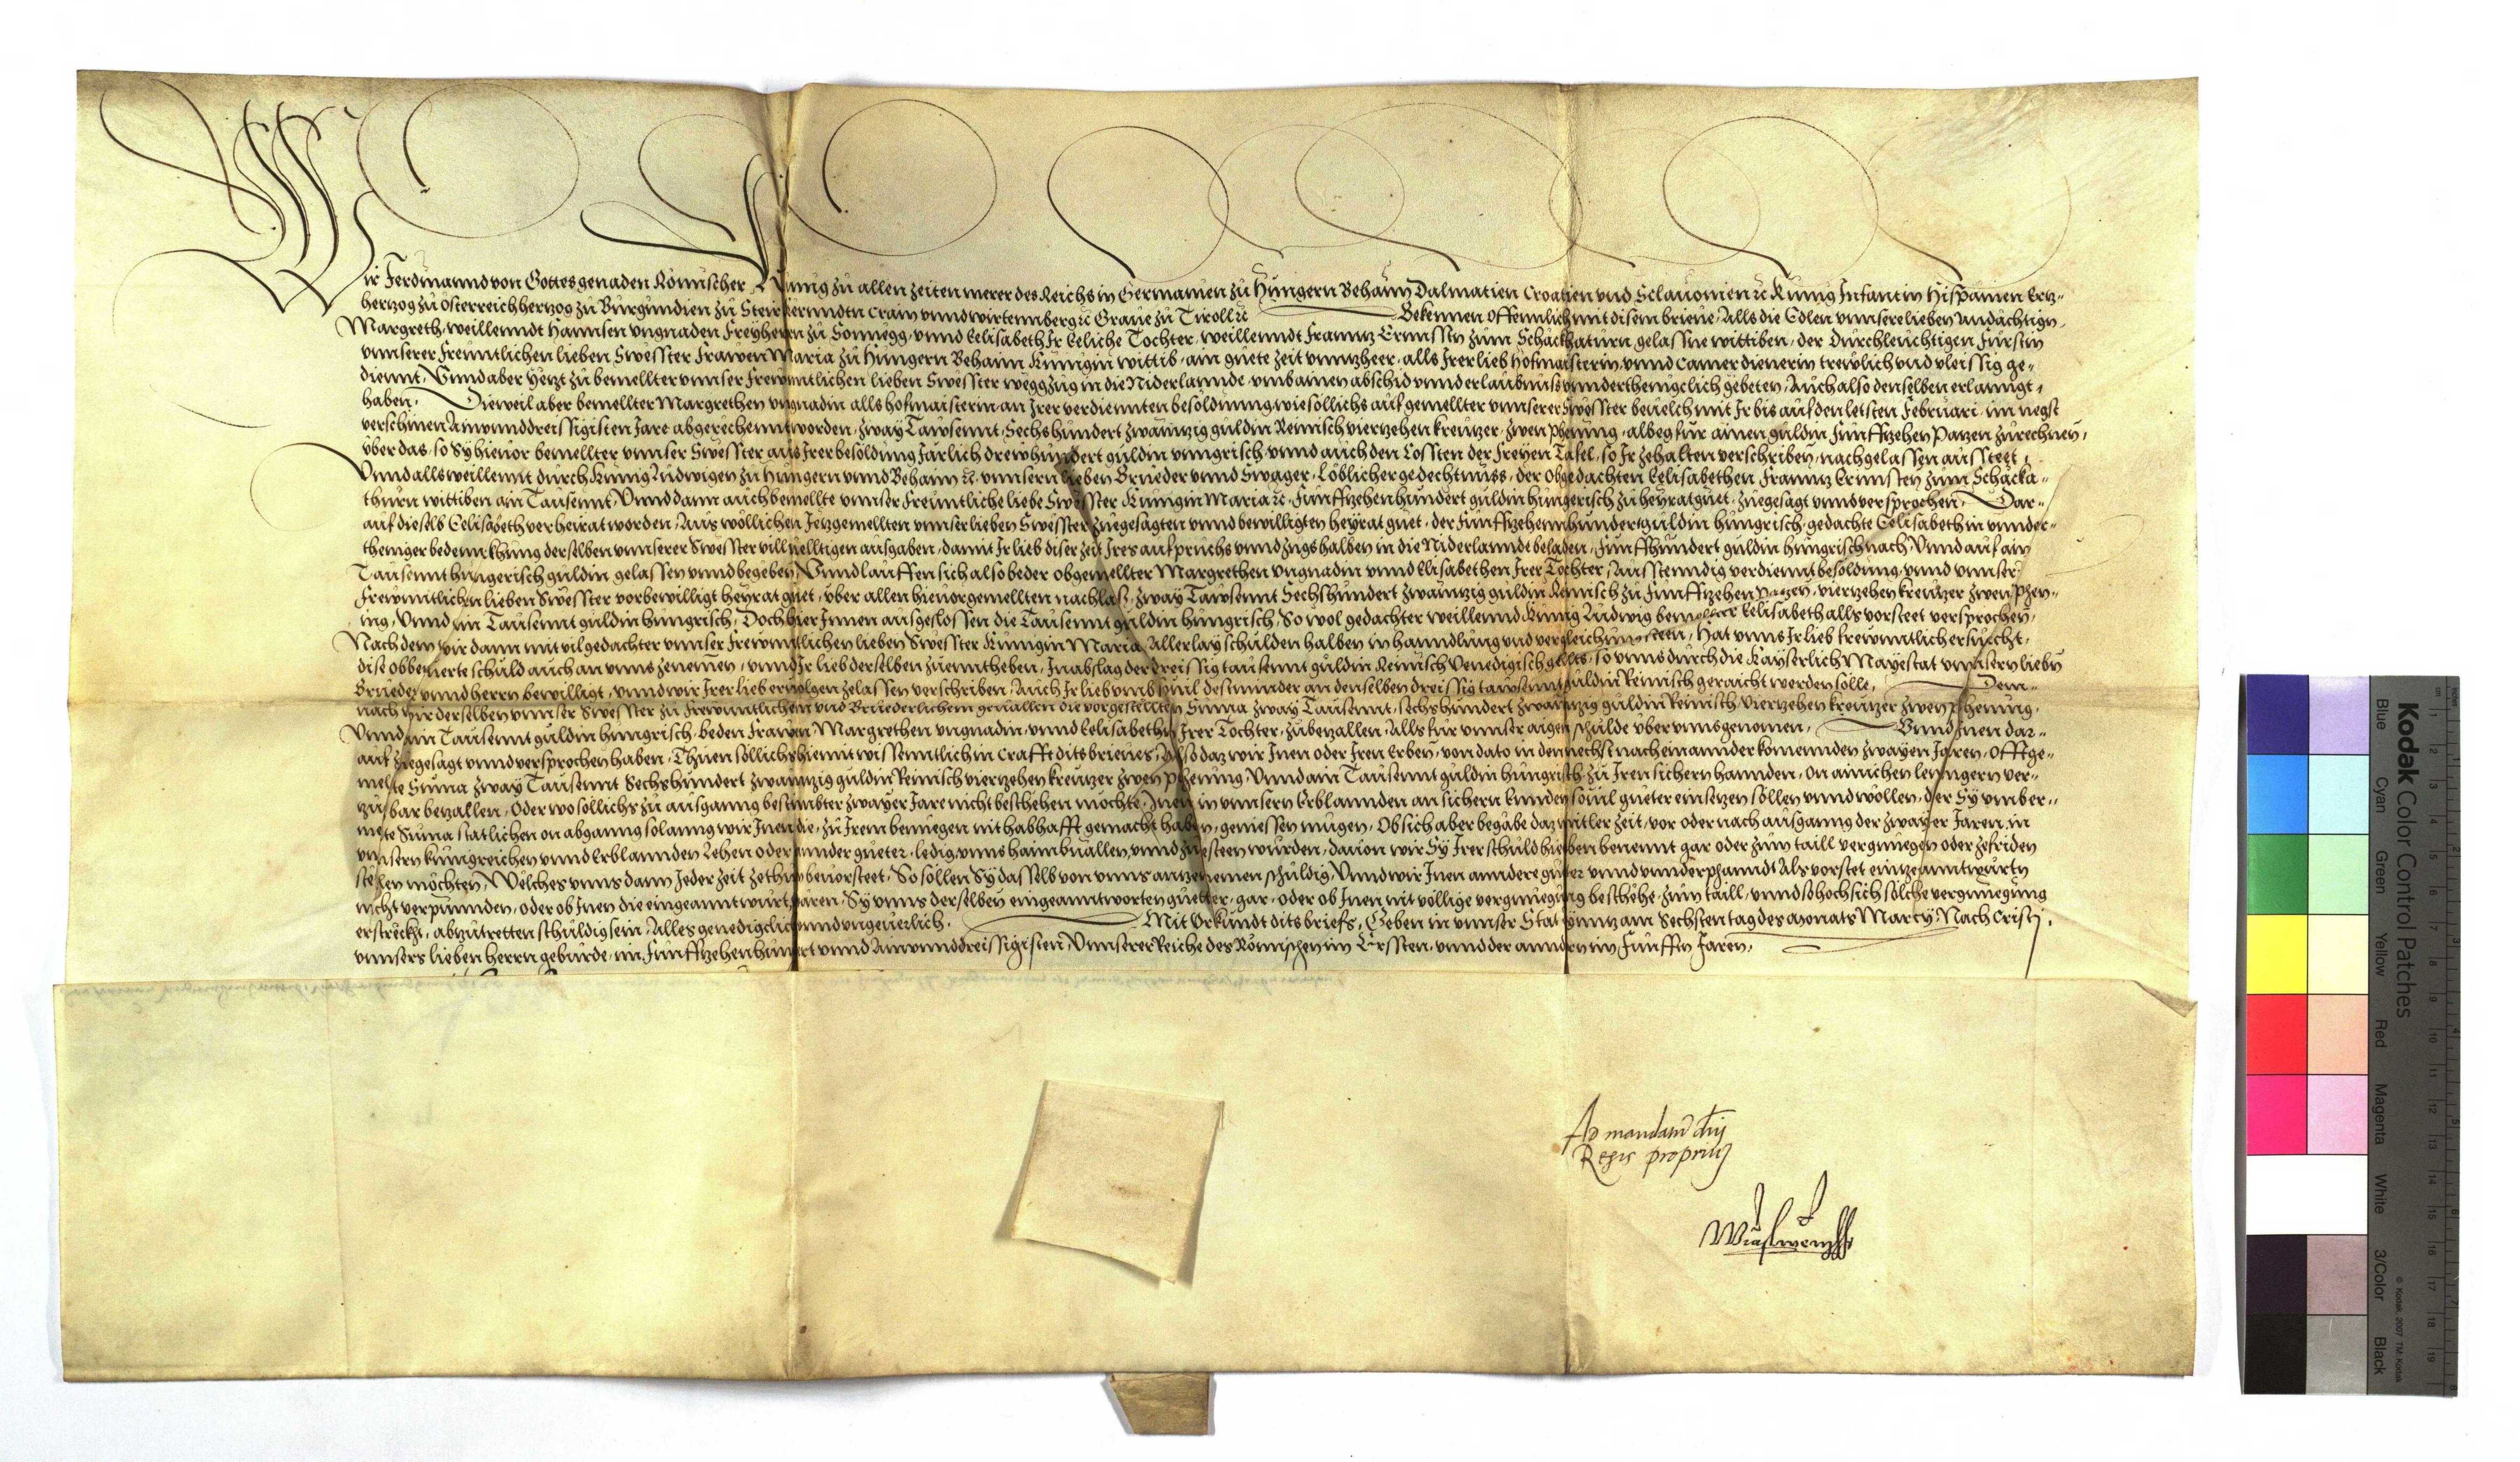 Wir Ferdinannd von Gottes genaden Römischer Kunig zu allen zeiten merer des Reichs in Germanien zu Hungern Behaim Dalmatien Croatien vnd Sclauonien etc Kunig Infant in Hispanien Ertz-
hertzog zu Osterreich hertzog zu Burgundien zu Steir Kerndtn Crain vnnd wirtemberg etc Graue zu Tiroll etc Bekennen offennlich mit disem brieue, Alls die Edlen vnnsere lieben Andachtign
Margreth, weillenndt Hannsen vngnaden Freyherrn zu Sonnegg, vnnd Eelisabeth Ir Eeliche Tochter, weillenndt Franntz Ernnssten zum Schackhaturn gelassne wittiben, der Durchleichtigen Furstin
vnnserer Freuntlichen lieben Swesster Frawen Maria zu Hungern Behaim Kunigin wittib, ain guete zeit vnnzheer, alls Irer lieb hofmaisterin, vnnd Camerdienerin trewlich vnd vleissig ge-
diennt, Vnnd aber yetzt zu bemellter vnnser Frewnntlichen lieben Swesster weggzug in die Niderlannde, vmb ainen abschid vnnd erlaubnuss vnnderthenigclich gebeten, Auch also denselben erlanngt
haben. Dieweil aber bemellter Margrethen vngnadin alls hofmaisterin an Irer verdiennten besoldnung wie sollichs auf gemellter vnnserer Swesster beuelch mit Ir bis auf den letsten Februari im negst
verschinen Ainvnnddreissigisten Jare abgerechennt worden, zway Tawsennt, Sechshundert zwainzig guldin Reinisch viertzehen kreutzer, zwen phening, albeg fur ainen guldin Funffzehen Patzen zurechnen,
vber das, so Sy hieuor bemellter vnnser Swesster aus Irer besoldung Jarlich drewhundert guldin vnngrisch, vnnd auch den Cossten der Freyen Tafel, so Ir zehalten verschriben, nachgelassen aussteet,
Vnnd alls weillennt durch Kunig Ludwigen zu Hungern vnnd Behaim etc. vnnsern lieben Brueder vnnd Swager, Löblicher gedechtnuss, der obgedachten Eelisabethen Franntz Ernnsten zum Schacka-
thurn wittiben ain Tausennt, Vnnd dann auch bemellte vnnser Freuntliche liebe Swesster Kunigin Maria etc. Funffzehenhundert guldin hungerisch zu heyratguet, zuegesagt vnnd versprochen, Dar-
auf dieselb Eelisabeth verheirat worden, Aus wöllichen Jetzgemellten vnnser lieben Swesster zuegesagten vnnd bewilligten heyrat guet, der Funffzehennhundert guldin hungrisch, gedachte Eelisabeth in vnnder-
theniger bedennckhung derselben vnnserer Swesster villuelltigen ausgaben, damit Ir lieb diser zeit Ires aufpruchs vnnd zugs halben in die Niderlanndt beladen, Funffhundert guldin hungrisch nach, Vnnd auf ain
Tausennt hungerisch guldin gelassen vnnd begeben, Vnnd lauffen sich also beder obgemellter Margrethen vngnadin vnnd Elisabethen Irer Tochter, Ausstenndig verdiennt besoldung, vnnd vnnser
Frewnntlichen lieben Swesster vorbewilligt heyrat guet, vber allen hieuorgemellten nachlas, zway Tawsennt Sechshundert zwainzig guldin Reinisch zu Funffzehen Patzen, viertzehen kreutzer zwen Phen-
ing, Vnnd ain Tausennt guldin hungrisch, Doch hier Innen ausgeslossen die Tausennt guldin hungrisch, So wol gedachter weillennd Kunig Ludwig bemellter Eelisabeth alls vorsteet versprochen,
Nachdem wir dann mit vilgedachter vnnser Frewnntlichen lieben Swesster Kunigin Maria, Allerlay schulden halben in hanndlung vnd vergleichung steen, Hat vnns Ir lieb Frewnntlich ersuecht,
dise obberuerte schuld auch an vnns zenemen, vnnd Ir lieb derselben zuenntheben, In abslag der dreissig tausennt guldin Reinisch Venedigisch gellts, so vnns durch die Kayserlich Mayestat vnnsern lieben
Brueder vnnd herrn bewilligt, vnnd wir Irer lieb eruolgen zelassen verschriben, Auch Ir lieb vmb souil dest minder an denselben dreissig tawsennt guldin Reinisch geraicht werden solle, Dem-
nach wir derselben vnnser Swesster zu Frewnntlichem vnd Bruederlichem geuallen die vorgestellten Suma zway Tausennt, sechshundert zwainzig guldin Reinisch, Viertzehen kreutzer zwen phening,
Vnnd ain Tausennt guldin hungrisch, beden Frawen Margrethen vngnadin, vnnd Eelisabethn Irer Tochter, zubezallen, Alls fur vnnser aigen schulde vber vnns genomen, Vnnd Inen dar-
auf zuegesagt vnnd versprochen haben, Thuen sollichs hiemit wissenntlich in Crafft dits brieues, Also daz wir Inen oder Iren Erben, von dato in den nechst nacheinannder komennden zwayen Jaren, offtge-
melte Suma zway Tausennt Sechshundert zwainzig guldin Reinisch viertzehen kreutzer zwen phening, Vnnd ain Tausennt guldin hungrisch zu Iren sichern hannden, on ainichen lenngern ver-
zug bar bezallen, Oder wo sollichs zu ausganng bestimbter zwayer Jare nicht beschehen möchte, Inen in vnnsern Erblannden an sichern Ennden souil gueter einsetzen söllen vnnd wöllen, der Sy vmb er-
melte Suma statlichen on abganng solanng wir Inen die, zu Irem benüegen nit habhafft gemacht haben, geniessen mügen, Ob sich aber begabe daz mitler zeit, vor oder nach ausganng der zwayer Jaren, in
vnnsern kungreichen vnnd Erblannden Lehen oder annder gueter, ledig, vnns haimbfiallen, vnnd zuesteen wurden, dauon wir Sy Irer schuld hieoben benennt gar oder zum taill vergnuegen oder zefriden
stellen möchten, Welches vnns dann Jeder zeit zethun beuorsteet, So sollen Sy dasselb von vnns antzenemen schuldig, Vnnd wir Inen anndere guter vnnd vnnderphanndt Als vorstet eintzeanntwurtn
nicht verpunnden, oder ob Inen die eingeanntwurt waren, Sy vnns derselben eingeanntworten guetter, gar, oder ob Inen nit völlige vergnuegung beschehe, zum taill, vnnd so hoch sich solche vergnuegung
erstreckht, abzutretten schuldig sein, Alles genedigclich vnnd vngeuerlich. Mit Vrkundt dits briefs, Geben in vnnser Stat Gmunntz am Sechsten tag des Monats Marcy, Nach Cristi,
vnnsers lieben herrn geburde, im Funffzehenhundert vnnd Ainvnnddreissigisten, Vnnserer Reiche des Römischen im Erssten, vnnd der anndern im Funfften Jaren,
Ad mandatum dni
Regis proprium
Kodak Color Control Patches
Blue Cyan Green Yellow Red Magenta White 3/Color Black
© Kodak, 2007 TM: Kodak